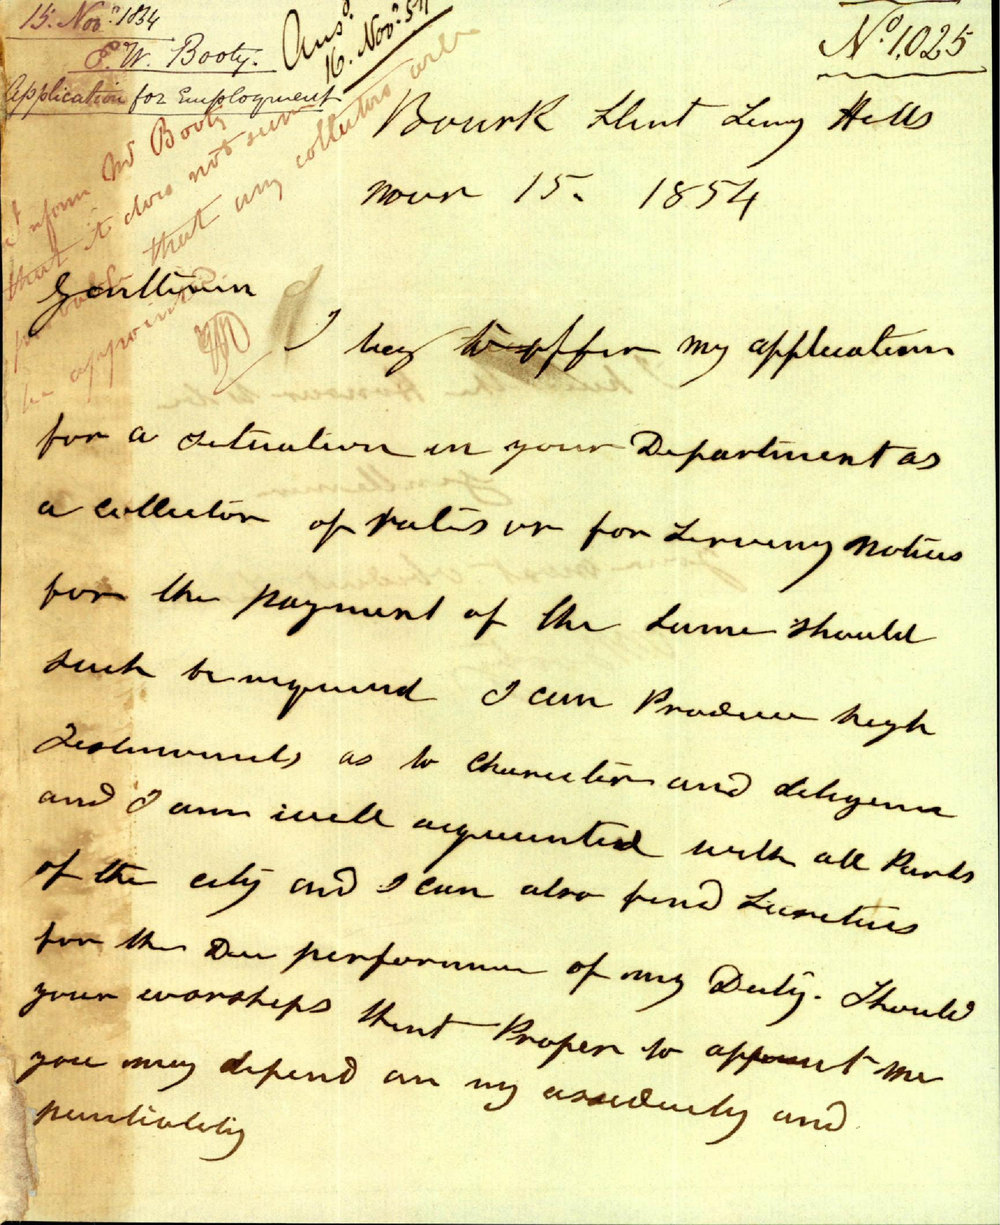 15. Nov.r 1854
W. Booty.
Application for Employment
Ans.d
16. Nov.r 54
No. 1,025
Inform Mr Booty
that it does not seem
probable that any collectors will
be appointed
Bourk Street Surry Hills
Novr 15. 1854
Gentlemen
I beg to offer my application
for a situation in your Department as
a collector of rates or for serving notices
for the payment of the same should
such be required I can Produce high
Testimonials as to Character and diligence
and I am well acquainted with all Parts
of the city and I can also find Sureties
for the Due performance of my Duty. Should
your worships think Proper to appoint me
you may depend on my assiduity and
punctuality